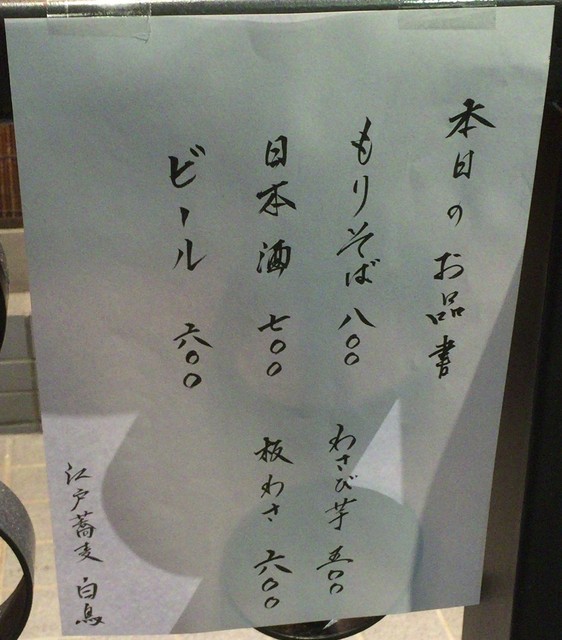 本日のお品書
もりそば 八〇〇
わさび芋 五〇〇
日本酒 七〇〇
板わさ 六〇〇
ビール 六〇〇
江戸蕎麦 白鳥